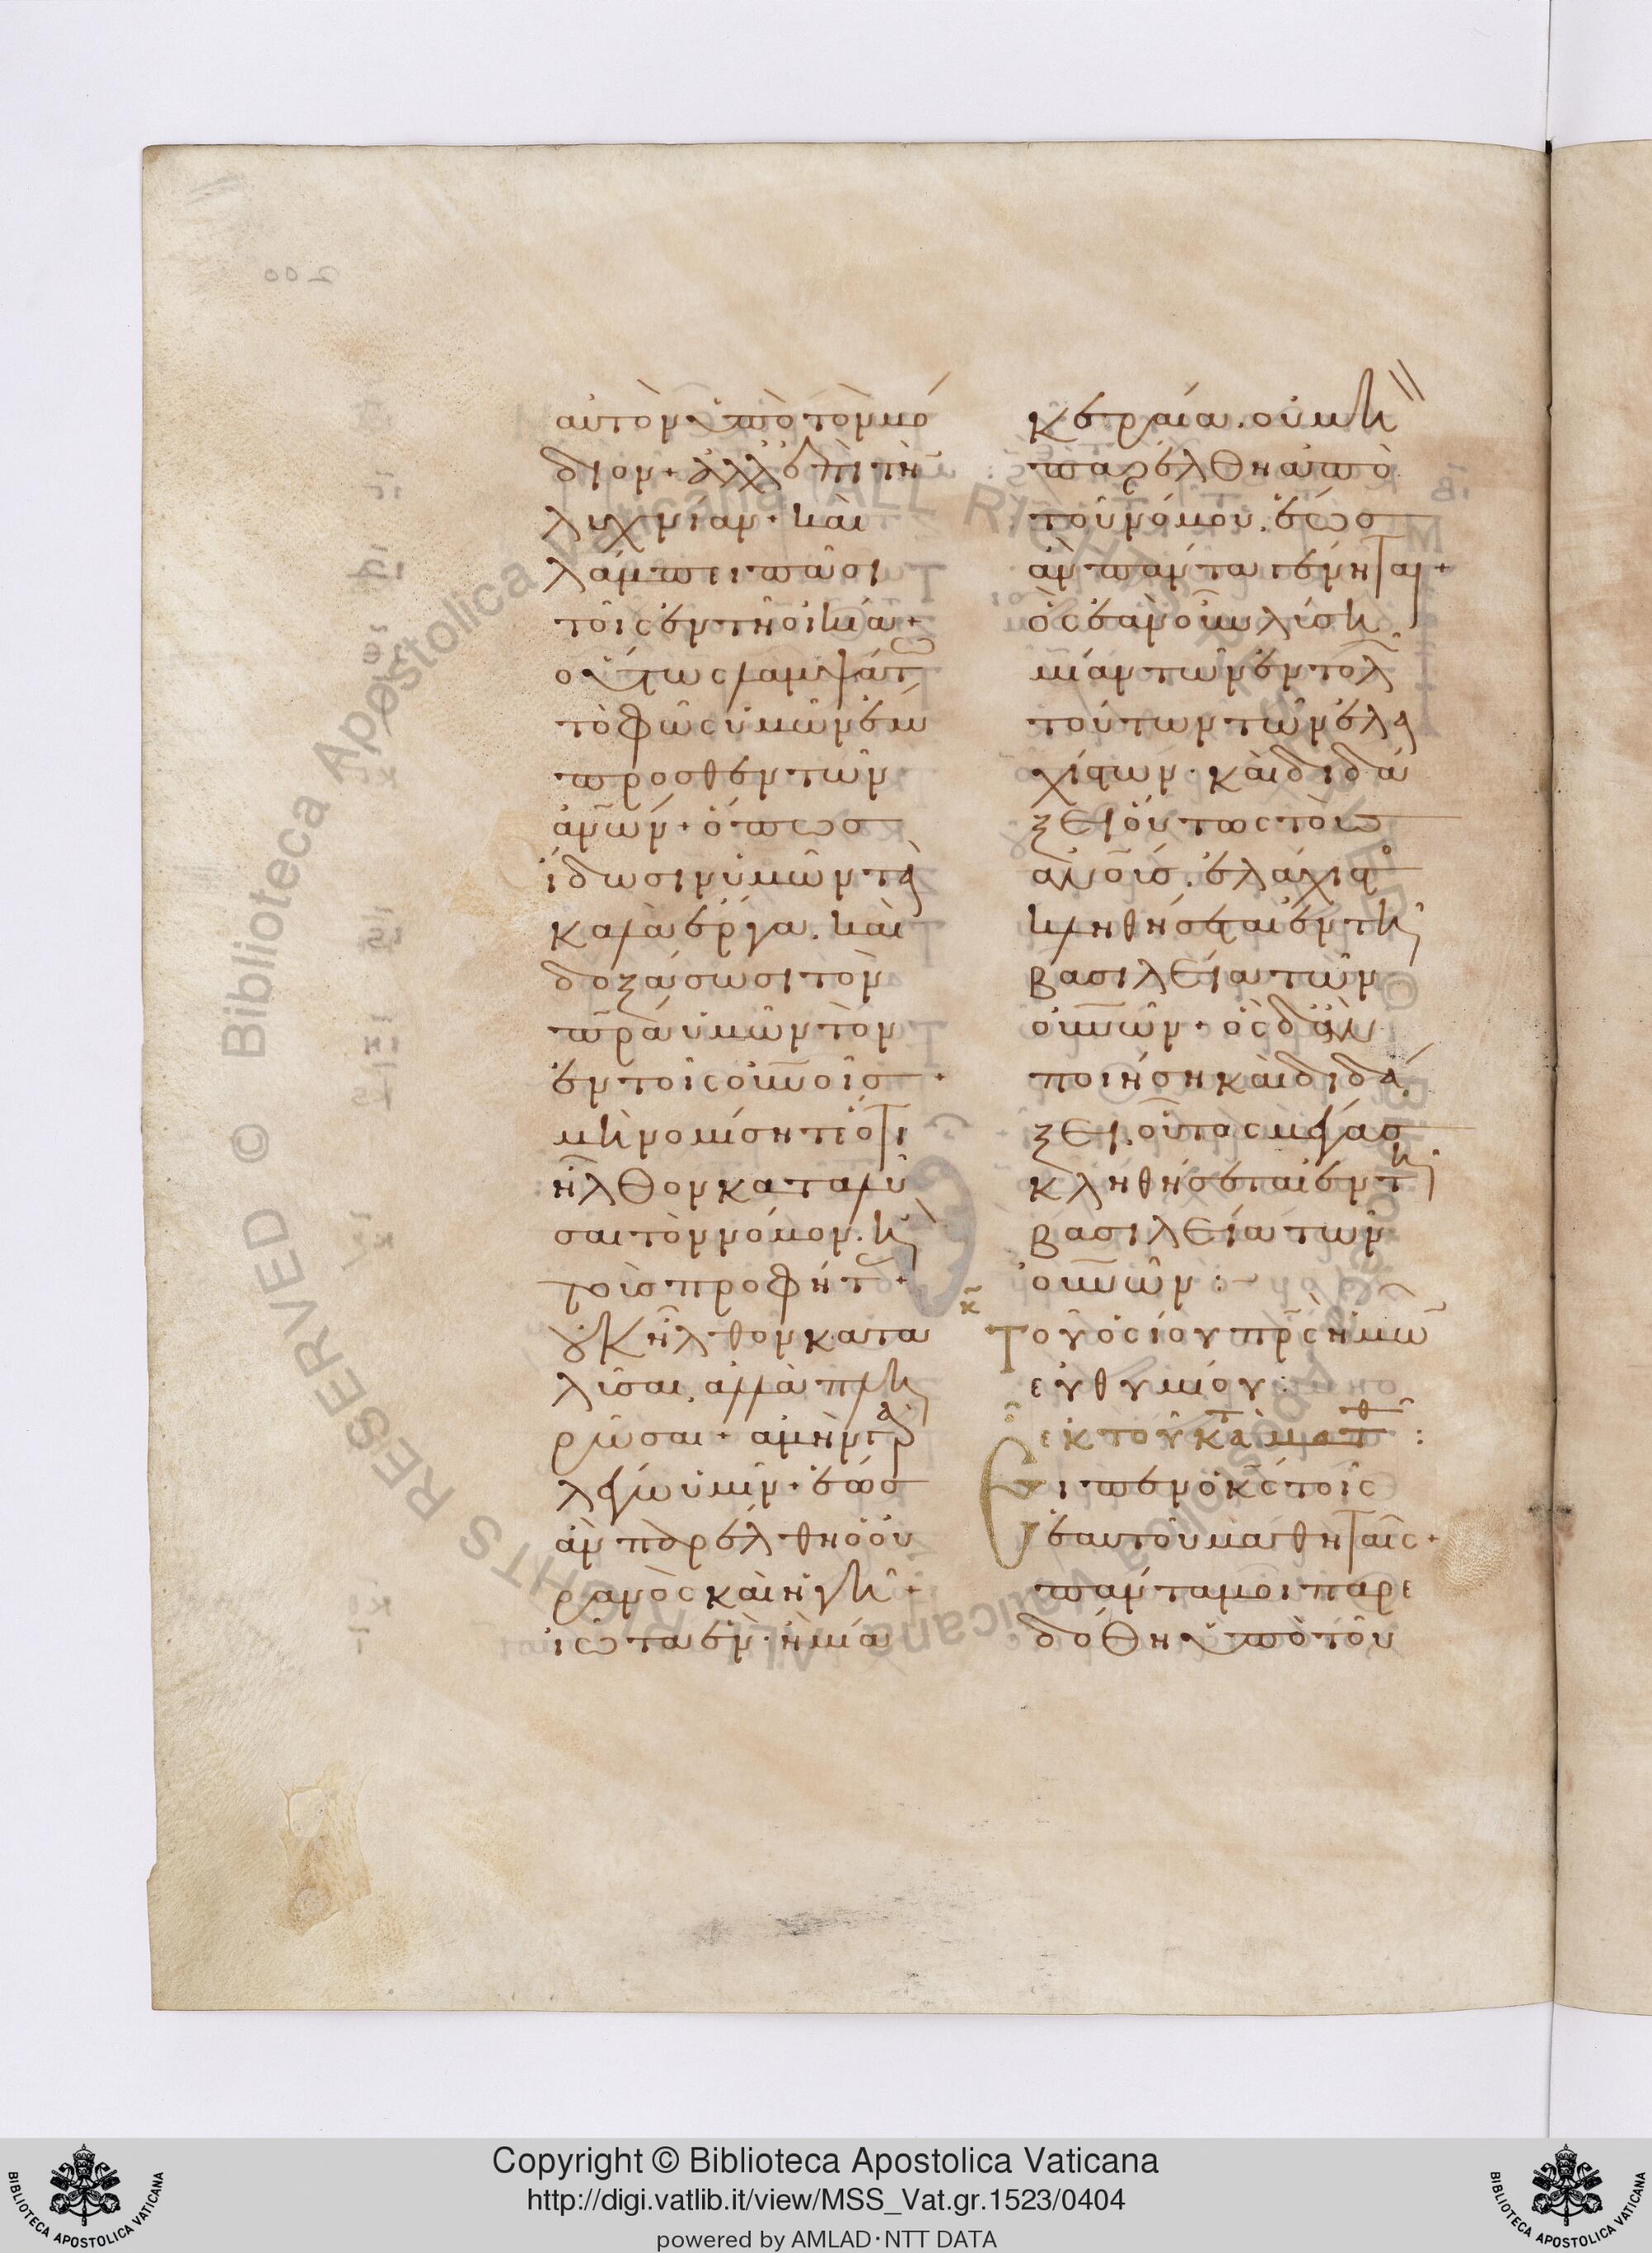 αὐτὸν ὑπὸ τὸν μό
διον + ἀλλ' ἐπὶ τὴν
λυχνίαν · καὶ
λάμπει πᾶσι
τοῖς ἐν τῆ οἰκία +
οὕτως λαμψάτω
τὸ φῶς ὑμῶν ἔμ
προσθεν τῶν
ἀν̅ων + ὅπως
ἴδωσιν ὑμῶν τὰ
καλὰ ἔργα . καὶ
δοξάσωσι τὸν
π̅ρα ὑμῶν τὸν
ἐν τοῖς οὐν̅οῖς +
μὴ νομίσητε ὅτι
ἦλθον καταλῦ
σαι τὸν νόμον . ἢ
τοὺσ προφήτ +
οὐκ ἦλθον κατα
λῦσαι, ἀλλὰ πλη
ρῶσαι + ἀμὴν γὰρ
λέγω ὑμῖν + ἕως
ἂν παρέλθη ὁ οὐ
ρανὸς καὶ ἡ γῆ +
ἰῶτα ἓν · ἢ μία
κεραία . οὐ μὴ
παρέλθη ἀπὸ
τοῦ νόμου . ἕως
ἂν πάντα γένηται +
ὃς ἐὰν οὖν λύση
μίαν τῶν ἐντολ
τούτων τῶν ἐλα
χίστων · καὶ διδά
ξει οὕτως τοὺς
ἀν̅ους . ἐλάχιστο
κληθήσεται ἐν τῆ
βασιλεία τῶν
οὐν̅ῶν + ὃς δ' ἂν
ποιήση καὶ διδά
ξει . οὗτος μέγας
κληθήσεται ἐν τῆ
βασιλεία τῶν
οὐν̅ῶν :
κ̅
Τοῦ ὁσίου πρ̅ς ἡμῶ
εὐθυμίου :
ἐκ τοῦ κατὰ ματθ :
Εἶπεν ὁ κ̅ς τοῖς
ἑαυτοῦ μαθηταῖς +
πάντα μοι παρε
δόθη ὑπὸ τοῦ
200
© Biblioteca Apostolica Vaticana ALL RIGHTS RESERVED
Copyright © Biblioteca Apostolica Vaticana
http://digi.vatlib.it/view/MSS_Vat.gr.1523/0404
powered by AMLAD · NTT DATA
BIBLIOTECA APOSTOLICA VATICANA
BIBLIOTECA APOSTOLICA VATICANA